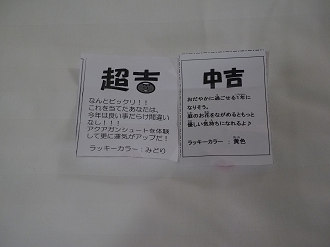 超吉
なんとビックリ！！
これを当てたあなたは、
今年は良い事だらけ間違い
なし！！！
アクアガンシュートを体験
して更に運気がアップだ！
ラッキーカラー：みどり
中吉
おだやかに過ごせる1年に
なりそう。
庭のお花をながめるともっと
優しい気持ちになれるよ♪
ラッキーカラー ： 黄色